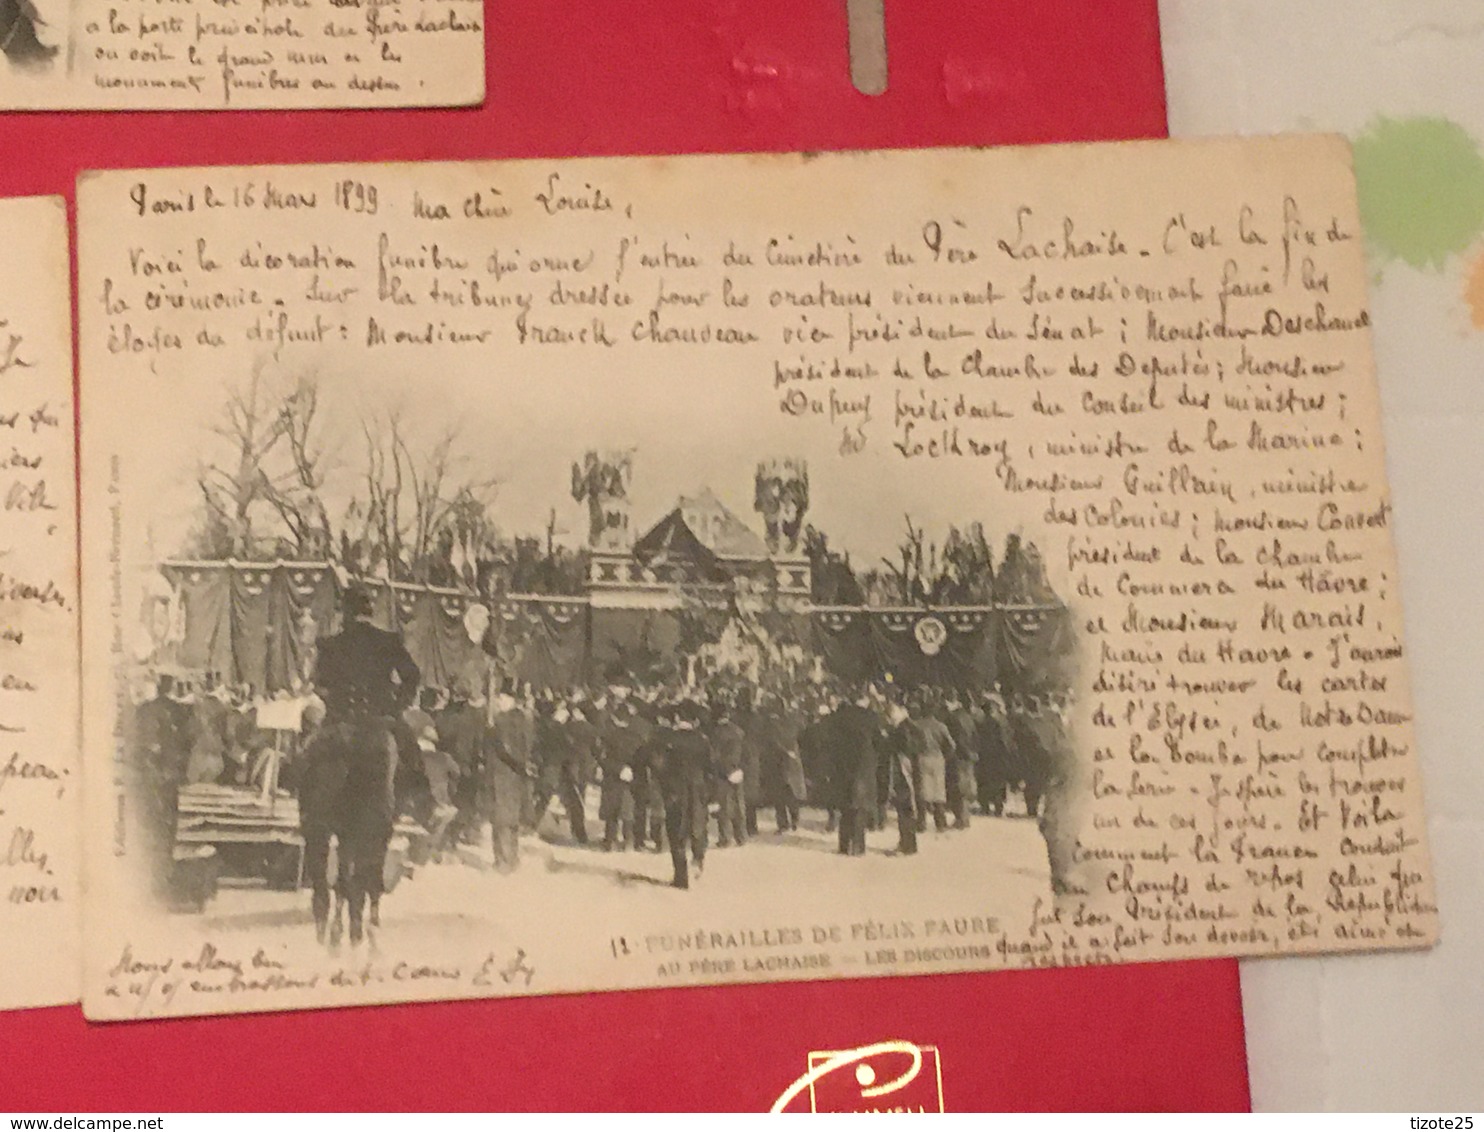 a la porte principale du Père Lachaise
on voit le grand mur et les
monuments funèbres au dessus.
Paris le 16 Mars 1899. Ma chère Louise,
Voici la décoration funèbre qui orne l'entrée du Cimetière du Père Lachaise. C'est la fin de
la cérémonie. Sur la tribune dressée pour les orateurs viennent successivement faire les
éloges du défunt: Monsieur Franck Chauveau vice président du Sénat; Monsieur Deschanel
président de la Chambre des Députés; Monsieur
Dupuy président du Conseil des ministres;
M. Lockroy, ministre de la Marine;
Monsieur Guillain, ministre
des Colonies; Monsieur Couvert
président de la Chambre
de Commerce du Hâvre;
et Monsieur Marais,
Maire du Havre. J'aurais
désiré trouver les cartes
de l'Elysée, de Notre Dame
et la Tombe pour compléter
la série. J'espère les trouver
un de ces jours. Et Voila
comment la France conduit
au champs de repos celui qui
fut son Président de la République
quand il a fait son devoir, été aimé et
respecté.
Editions P. S. à D. Rue Claude-Bernard, Paris
12. FUNÉRAILLES DE FÉLIX FAURE
AU PÈRE LACHAISE — LES DISCOURS
Nous allons bien
embrassons de Cœur
delcampe.net
tizote25